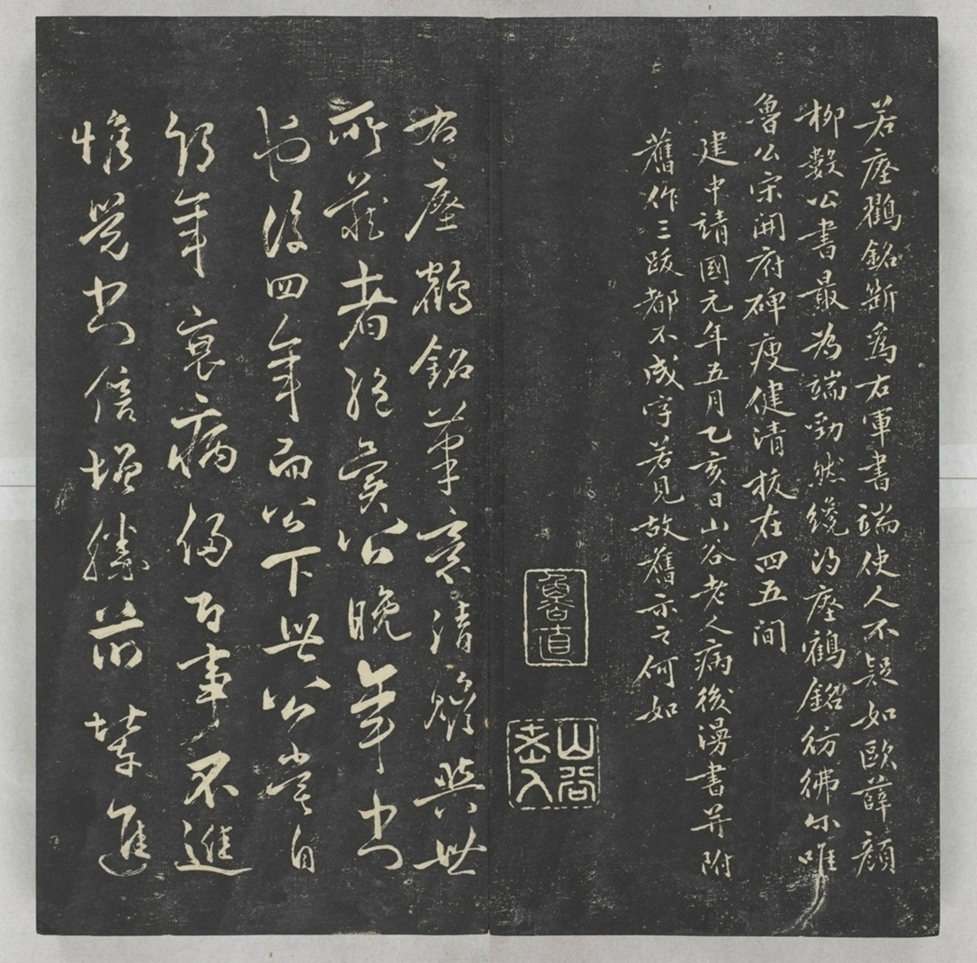 若瘞鶴銘斷爲右軍書端使人不疑如歐薛顔
柳數公書最為端勁然纔得瘞鶴銘彷彿尓唯
魯公宋開府碑瘦健清拔在四五間
建中靖國元年五月乙亥日山谷老人病後漫書并附
舊作三跋都不成字若見故舊示之何如
魯直
山谷老人
右瘞鶴銘筆意清與世
所藏者絶異公晚年書
後四年而公下世公嘗自
年衰病侵百事不進
惟覺書倍增勝前進